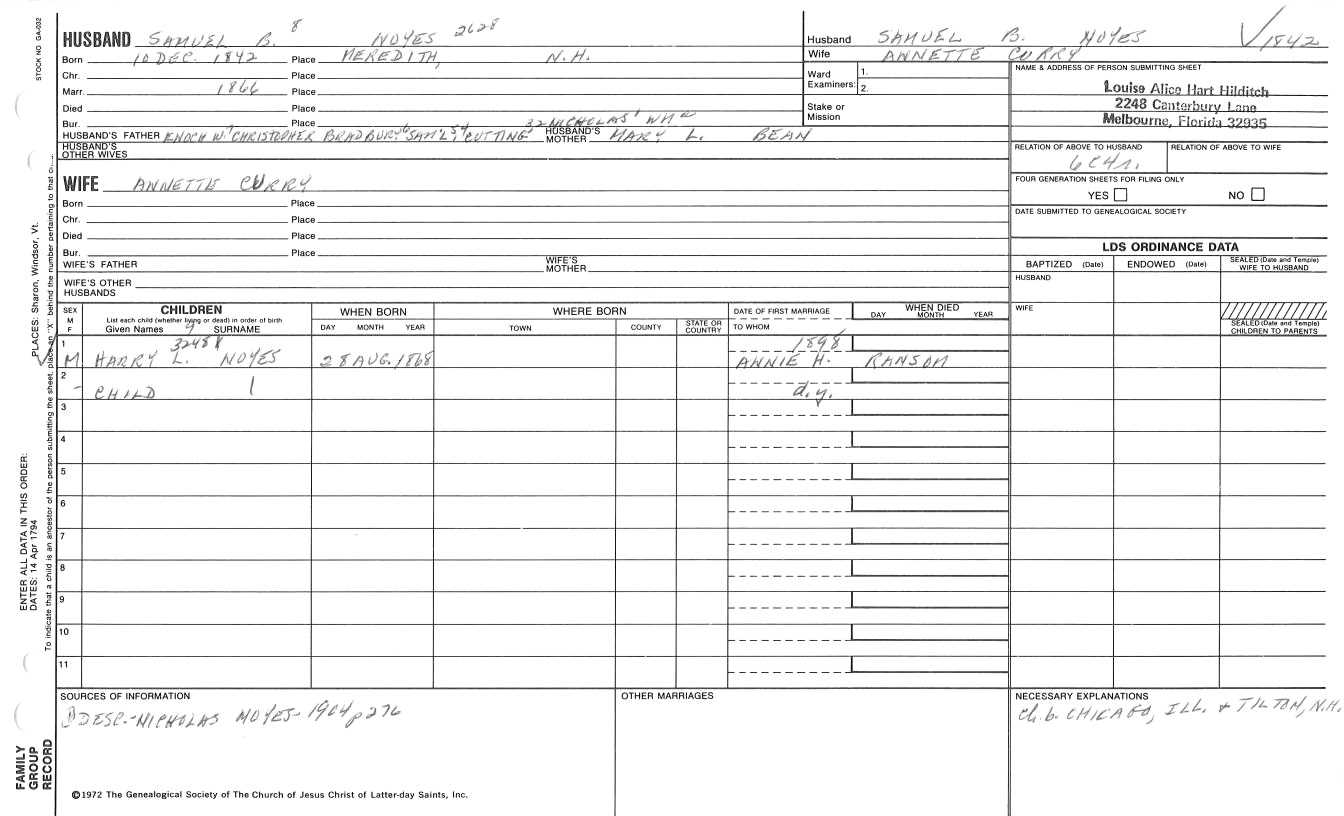 STOCK NO GA-032
HUSBAND SAMUEL B. 8 NOYES 2628
Born 10 DEC. 1842 Place MEREDITH, N.H.
Chr. Place
Marr. 1866 Place
Died Place
Bur. Place
HUSBAND'S FATHER ENOCH W.7 CHRISTOPHER BRADBURY,6 SAM'L,5,4 CUTTING3 2 NICHOLAS1 WM HUSBAND'S MOTHER MARY L. BEAN
HUSBAND'S OTHER WIVES
WIFE ANNETTE CURRY
Born Place
Chr. Place
Died Place
Bur. Place
WIFE'S FATHER WIFE'S MOTHER
WIFE'S OTHER HUSBANDS
Husband SAMUEL B. NOYES 1842
Wife ANNETTE CURRY
Ward Examiners: 1.
2.
Stake or Mission
NAME & ADDRESS OF PERSON SUBMITTING SHEET
Louise Alice Hart Hilditch
2248 Canterbury Lane
Melbourne, Florida 32935
RELATION OF ABOVE TO HUSBAND RELATION OF ABOVE TO WIFE
6C4r.
FOUR GENERATION SHEETS FOR FILING ONLY
YES NO
DATE SUBMITTED TO GENEALOGICAL SOCIETY
LDS ORDINANCE DATA
BAPTIZED (Date) ENDOWED (Date) SEALED (Date and Temple) WIFE TO HUSBAND
HUSBAND
WIFE
SEALED (Date and Temple) CHILDREN TO PARENTS
SEX M F
CHILDREN
List each child (whether living or dead) in order of birth
Given Names 9 SURNAME
WHEN BORN
DAY MONTH YEAR
WHERE BORN
TOWN COUNTY STATE OR COUNTRY
DATE OF FIRST MARRIAGE
TO WHOM
WHEN DIED
DAY MONTH YEAR
1 3248 1898
M HARRY L. NOYES 28 AUG. 1868 ANNIE H. RANSOM
2
- CHILD d.y.
3
4
5
6
7
8
9
10
11
SOURCES OF INFORMATION
DESC.-NICHOLAS NOYES-1904 p276
OTHER MARRIAGES
NECESSARY EXPLANATIONS
Ch. b. CHICAGO, ILL. & TILTON, N.H.
©1972 The Genealogical Society of The Church of Jesus Christ of Latter-day Saints, Inc.
FAMILY GROUP RECORD
ENTER ALL DATA IN THIS ORDER:
DATES: 14 Apr 1794
PLACES: Sharon, Windsor, Vt.
To indicate that a child is an ancestor of the person submitting the sheet, place an "X" behind the number pertaining to that